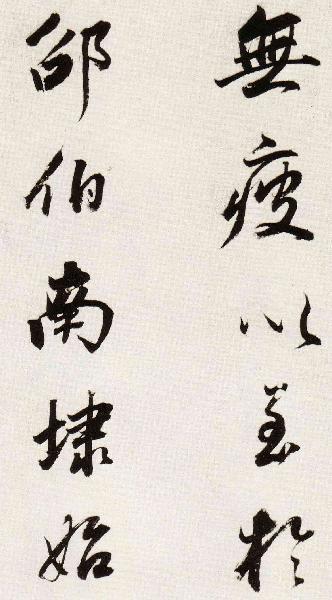 無疫以至於
邵伯南埭始